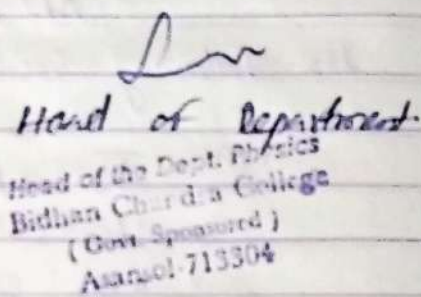 Head of Department.
Head of the Dept. Physics
Bidhan Chandra College
( Govt. Sponsored )
Asansol-713304